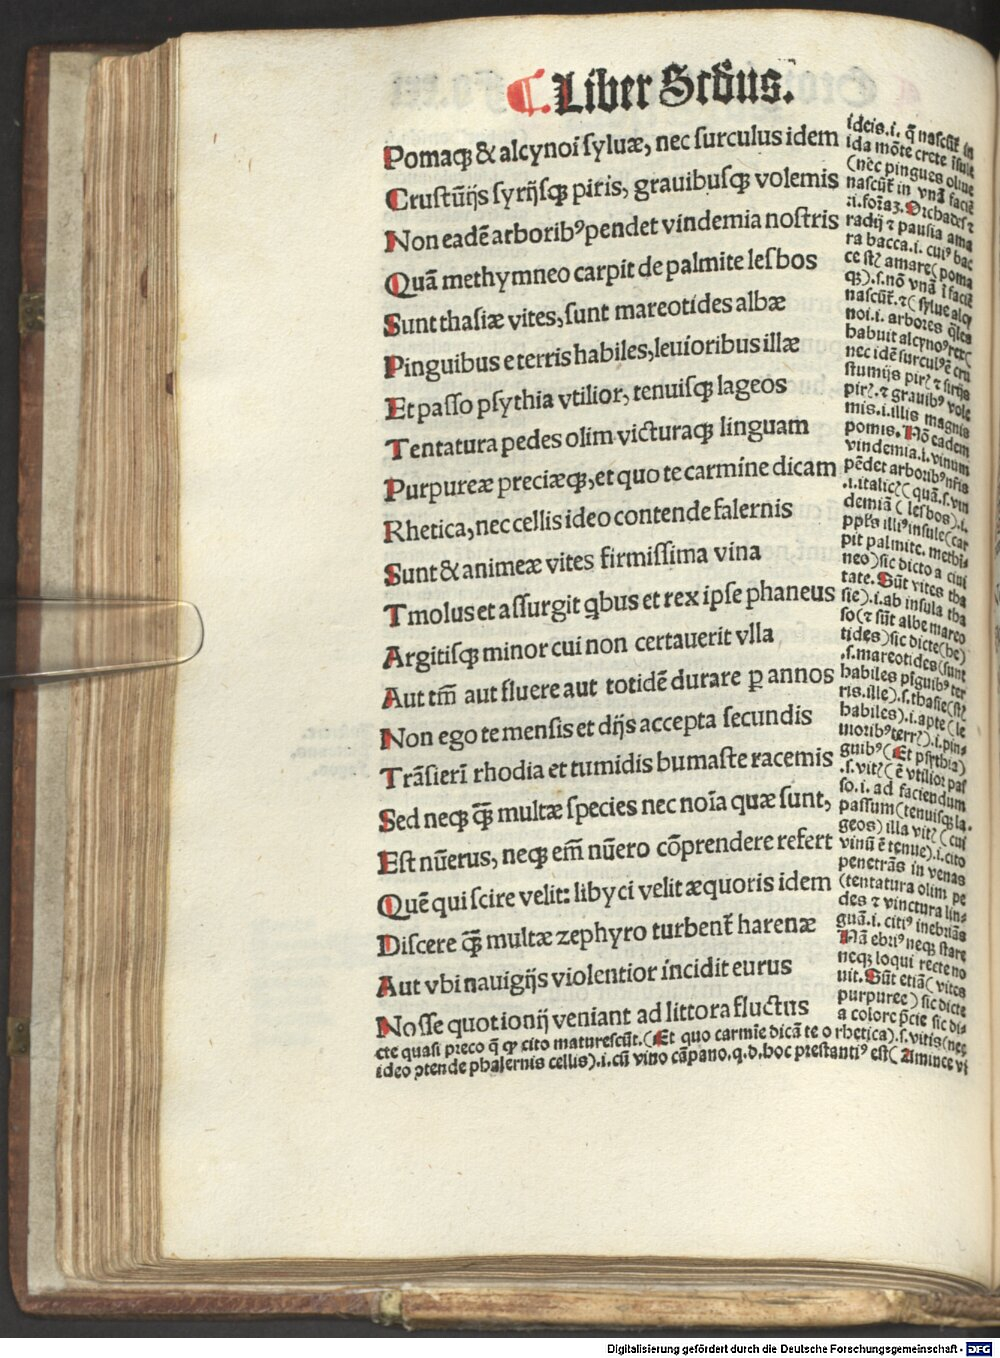 ¶. Liber Scd̄us.
Pomaqꝫ & alcynoi syluæ, nec surculus idem
Crustūijs syrijsqꝫ piris, grauibusqꝫ volemis
Non eadē arboribꝰ pendet vindemia nostris
Quā methymneo carpit de palmite lesbos
Sunt thasiæ vites, sunt mareotides albæ
Pinguibus e terris habiles, leuioribus illæ
Et passo psythia vtilior, tenuisqꝫ lageos
Tentatura pedes olim victuraqꝫ linguam
Purpureæ preciæqꝫ, et quo te carmine dicam
Rhetica, nec cellis ideo contende falernis
Sunt & animeæ vites firmissima vina
Tmolus et assurgit qbus et rex ipse phaneus
Argitisqꝫ minor cui non certauerit vlla
Aut tm̄ aut fluere aut totidē durare ꝑ annos
Non ego te mensis et dijs accepta secundis
Trāsierī rhodia et tumidis bumaste racemis
Sed neqꝫ qꝫ̄ multæ species nec noīa quæ sunt,
Est nūerus, neqꝫ em̄ nūero cōprendere refert
Quē qui scire velit: libyci velit æquoris idem
Discere qꝫ̄ multæ zephyro turbent᷑ harenæ
Aut vbi nauigijs violentior incidit eurus
Nosse quot ionij veniant ad littora fluctus
ideis .i. q̄ nascūt᷑ in
ida mōte crete īsule
(nec pingues oliue
nascūt᷑ in vnā faciē
.i. formaꝫ. Orchades ⁊
radij ⁊ pausia ama
ra bacca .i. cuiꝰ bac
ce sūt amare (poma
qꝫ) .s. nō vnā ī faciē
nascūt᷑. ⁊ (sylue alcy
noi .i. arbores q̄les
habuit alcynoꝰ rex (
nec idē surculꝰ ē cru
stumijs pirꝭ ⁊ sirijs
pirꝭ. ⁊ grauibꝰ vole
mis .i. illis magnis
pomis. Nō eadem
vindemia .i. vinum
pēdet arboribꝰ nr̄is
.i. italicꝭ (quā .s. vin
demiā (lesbos) .i.
ppl̄s illiꝰ insule (car
pit palmite. methi-
neo) sic dicto a ciui
tate. Sūt vites tha
sie) .i. ab insula tha
so (⁊ sūt albe mareo
tides) sic dicte (he)
.s. mareotides (sunt
habiles pīguibꝰ ter
ris. ille) .s. thasie (sūt
habiles) .i. apte (le
uioribꝰ terrꝭ) .i. pin-
guibꝰ (Et psythia)
.s. vitꝭ (ē vtilior pas
so .i. ad faciendum
passum (tenuisqꝫ la-
geos) illa vitꝭ (cui
vinū ē tenue) .i. cito
penetrās in venas
(tentatura olim pe
des ⁊ vinctura lin-
guā .i. citiꝰ inebriās
Nā ebriꝰ neqꝫ stare
neqꝫ loqui recte no
uit. Sūt etiā (vites
purpuree) sic dicte
a colore p̄cie sic di-
cte quasi preco q̄ qꝫ cito maturescūt. (Et quo carmīe dicā te o rhetica) .s. vitis (nec
ideo ꝯtende phalernis cellis) .i. cū vino cāpano. q.d. hoc prestantiꝰ est (Aminee vi
Digitalisierung gefördert durch die Deutsche Forschungsgemeinschaft - DFG